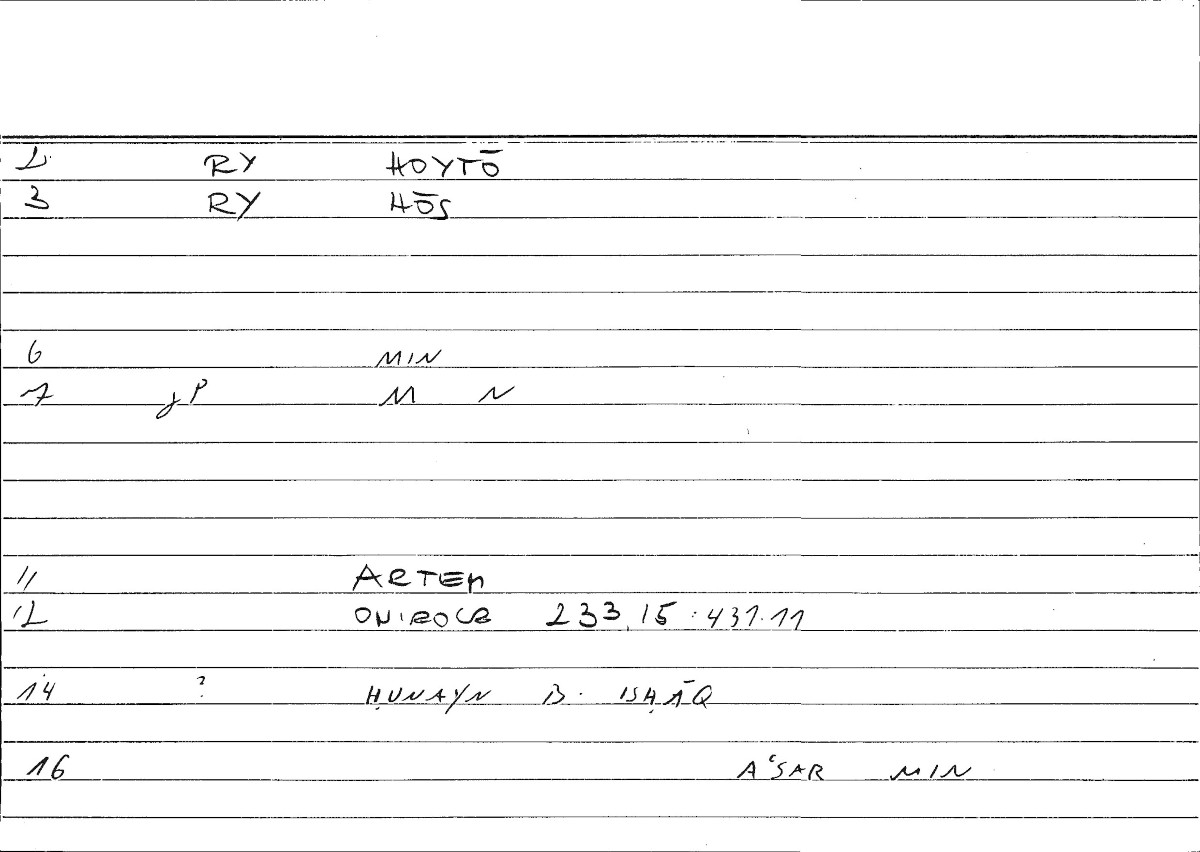 2 RY HOYTŌ
3 RY HŌS
6 MIN
7 jP M N
11 ARTEM
12 ONIROCR 233,15:431.11
14 ? ḤUNAYN B. ISḤĀQ
16 AʿSAR MIN